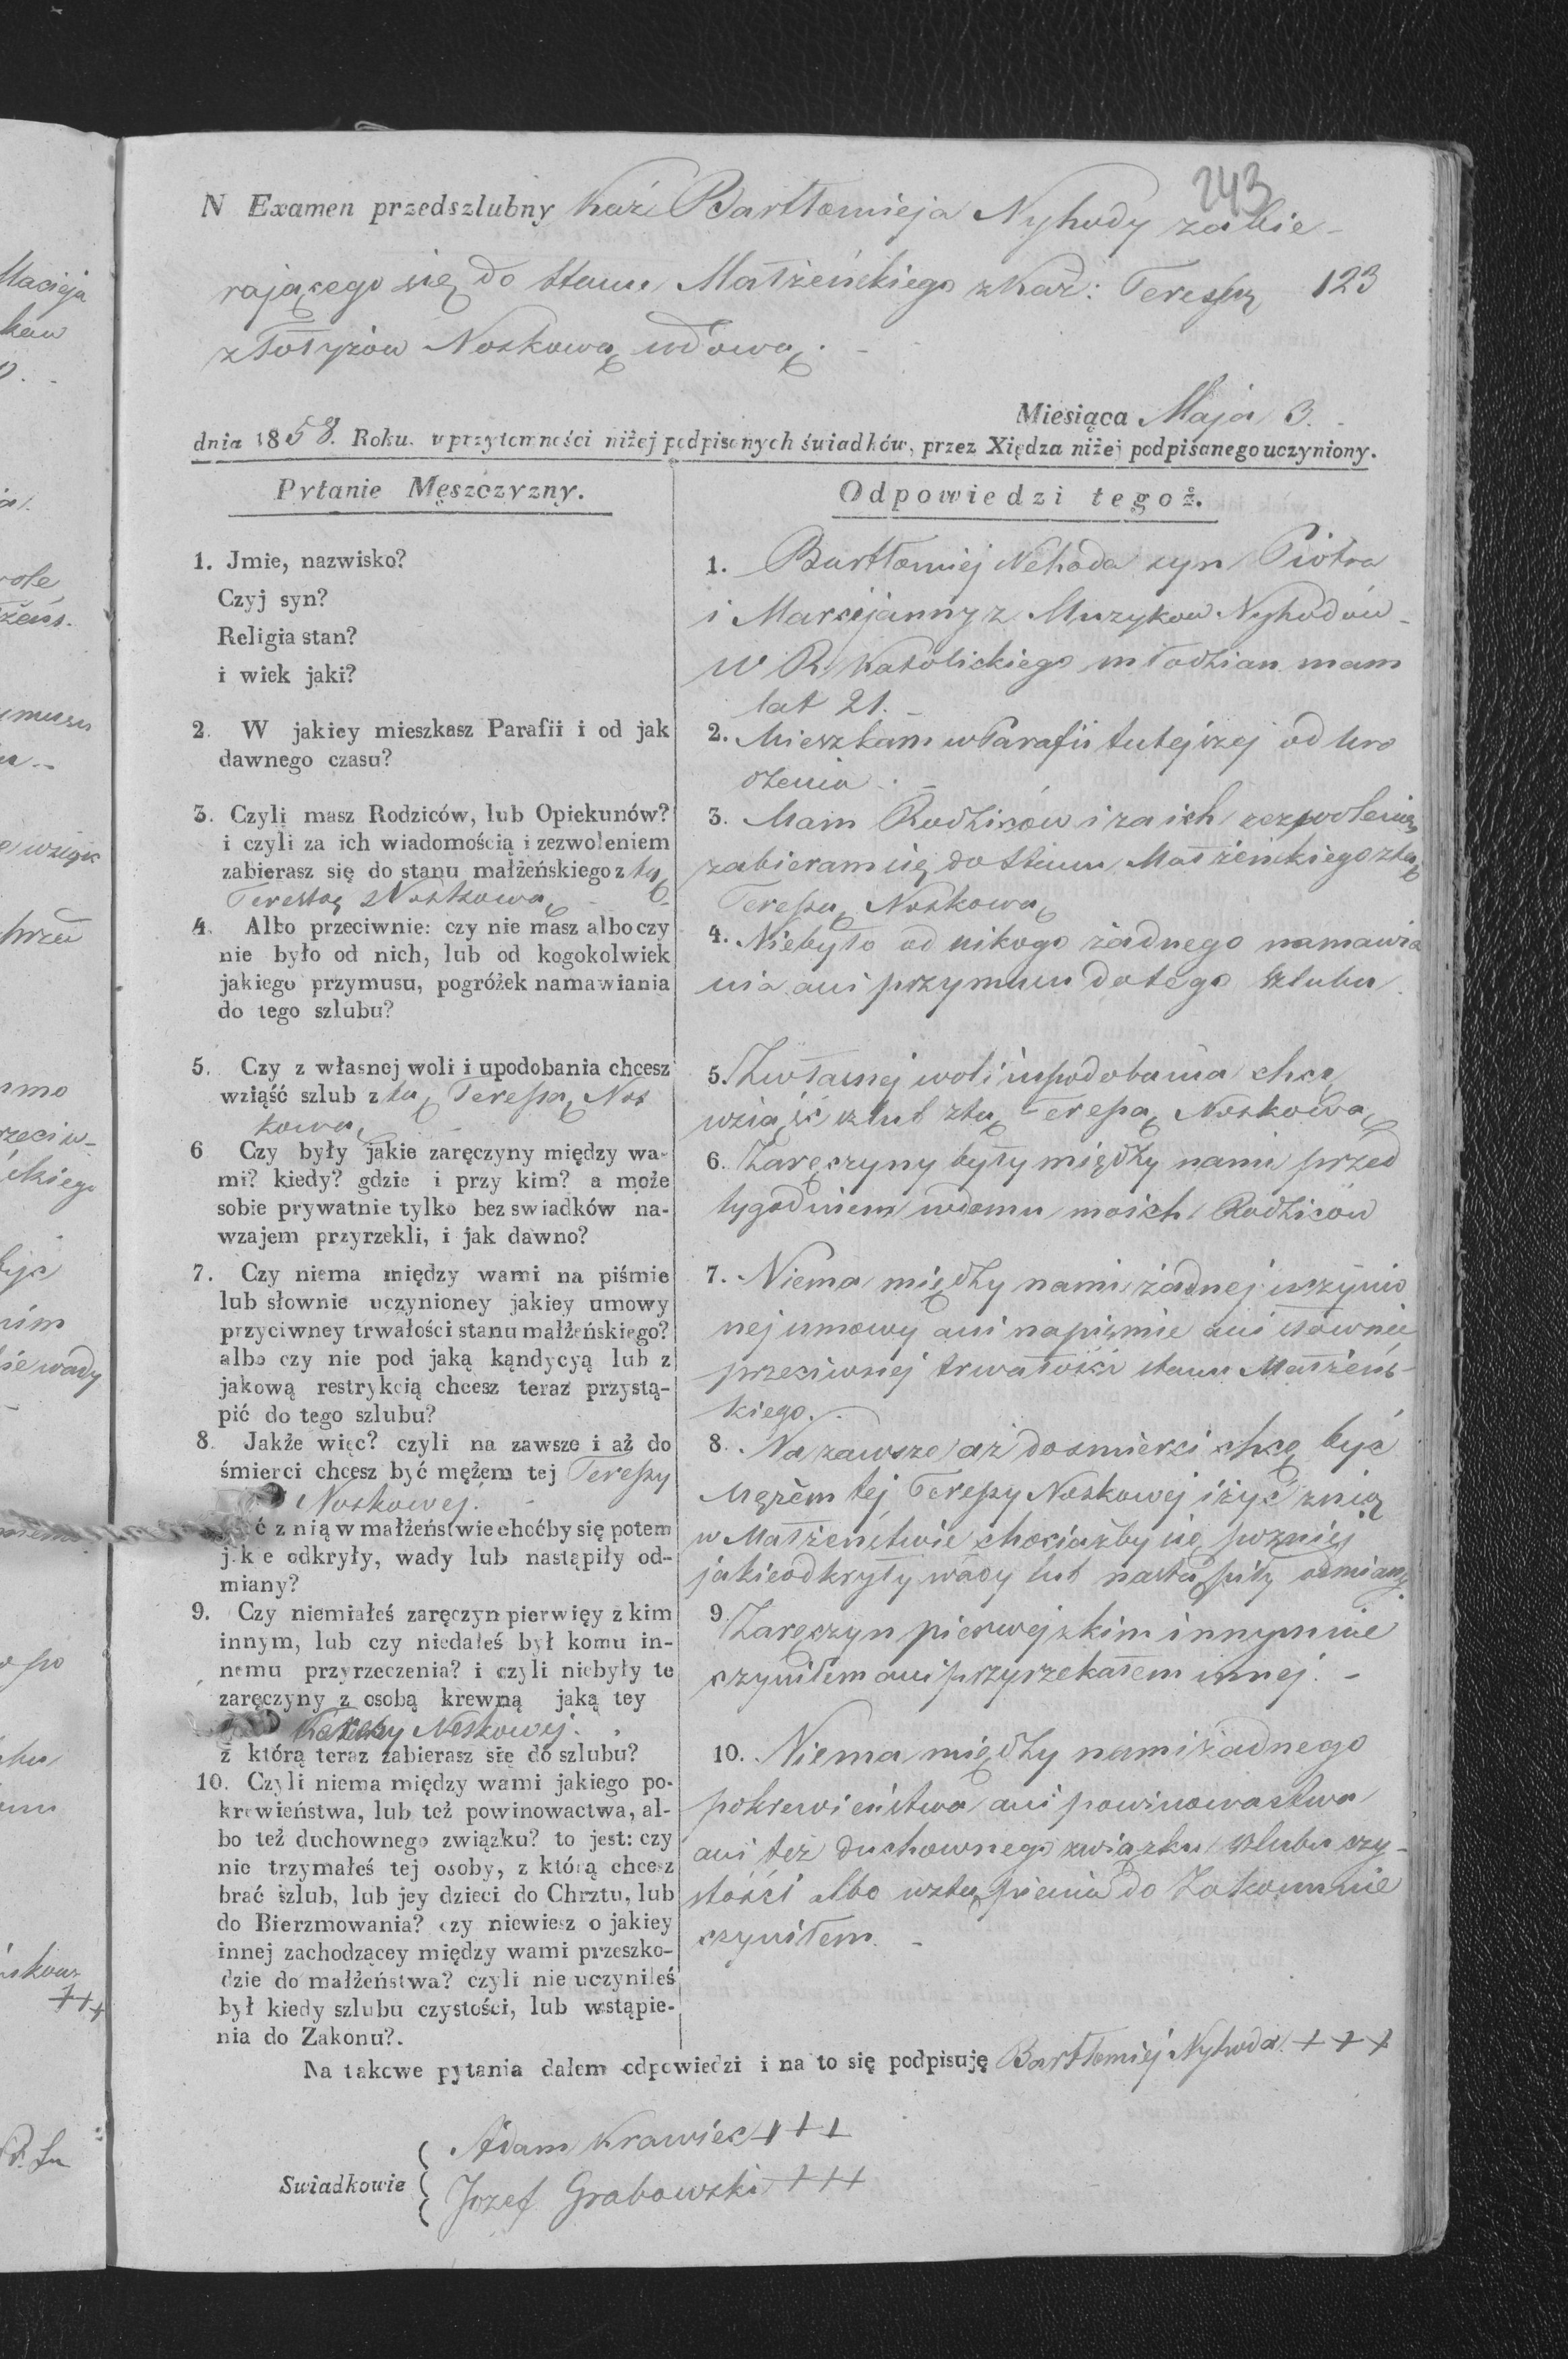 243
N Examen przedszlubny Każ: Bartłomieja Nyhody zabie-
rającego się do stanu Małżeńskiego z Każ: Teressą 123
z Noskową wdową.
Miesiąca Maja 3.
dnia 1858. Roku. w przytomności niżej podpisanych świadków, przez Xiędza niżej podpisanego uczyniony.
Pytanie Męszczyzny.
1. Jmie, nazwisko?
Czyj syn?
Religia stan?
i wiek jaki?
2. W jakiey mieszkasz Parafii i od jak
dawnego czasu?
3. Czyli masz Rodziców, lub Opiekunów?
i czyli za ich wiadomością i zezwoleniem
zabierasz się do stanu małżeńskiego z tą
Teressą Noskową
4. Albo przeciwnie: czy nie masz albo czy
nie było od nich, lub od kogokolwiek
jakiego przymusu, pogróżek namawiania
do tego szlubu?
5. Czy z własnej woli i upodobania chcesz
wziąść szlub z tą Teressą Nos
kową
6 Czy były jakie zaręczyny między wa-
mi? kiedy? gdzie i przy kim? a może
sobie prywatnie tylko bez swiadków na-
wzajem przyrzekli, i jak dawno?
7. Czy niema między wami na piśmie
lub słownie uczynioney jakiey umowy
przyciwney trwałości stanu małżeńskiego?
albo czy nie pod jaką kąndycyą lub z
jakową restrykcią chcesz teraz przystą-
pić do tego szlubu?
8. Jakże więc? czyli na zawsze i aż do
śmierci chcesz być mężem tej Teressy
Noskowej.
ć z nią w małżeństwie choćby się potem
jakie odkryły, wady lub nastąpiły od-
miany?
9. Czy niemiałeś zaręczyn pierwięy z kim
innym, lub czy niedałeś był komu in-
nemu przyrzeczenia? i czyli niebyły te
zaręczyny z osobą krewną jaką tey
Noskowej.
z którą teraz zabierasz się do szlubu?
10. Czyli niema między wami jakiego po-
krewieństwa, lub też powinowactwa, al-
bo też duchownego związku? to jest: czy
nie trzymałeś tej osoby, z którą chcesz
brać szlub, lub jey dzieci do Chrztu, lub
do Bierzmowania? czy niewiesz o jakiey
innej zachodzącey między wami przeszko-
dzie do małżeństwa? czyli nie uczyniłeś
był kiedy szlubu czystości, lub wstąpie-
nia do Zakonu?.
Odpowiedzi tegoż.
1. Bartłomiej Nehoda syn Piotra
i Marcijanny z Muzykow Nyhodów
W R Katolickiego młodzian mam
lat 21.
2. Mieszkam w Parafii tutejszej od uro
dzenia.
3. Mam Rodziców i za ich zezwoleniem
zabieram się do stanu Małżeńskiego z tą
Teressą Noskową
4. Niebyło od nikogo żadnego namawia
nia ani przymusu do tego szlubu.
5. Zwłasnej woli i upodobania chcę
wziąść szlub z tą Teressą Noskową
6. Zaręczyny były między nami przed
tygodniem w domu moich Rodziców
7. Niema między nami żadnej uczynio
nej umowy ani na pismie ani słownie
przeciwnej trwałości stanu Małżeńs-
kiego.
8. Na zawsze aż do smierci chcę być
Mężem tej Teressy Noskowej i żyć z nią
w Małżeństwie chociażby się pozniej
jakie odkryły wady lub nastąpiły odmiany.
9. Zaręczyn pierwej z kim innym nie
czyniłem ani przyrzekałem innej.
10. Niema między nami żadnego
pokrewieństwa ani powinowactwa
ani też duchownego związku szlubu czy-
stości albo wstąpienia do Zakonu nie
czyniłem.
Na takowe pytania dałem odpowiedzi i na to się podpisuję Bartłomiej Nyhoda +++
Swiadkowie
Adam Krawiec +++
Jozef Grabowski +++